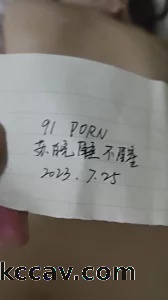 91 PORN
苏 不
2023. 7.25
kccav.com